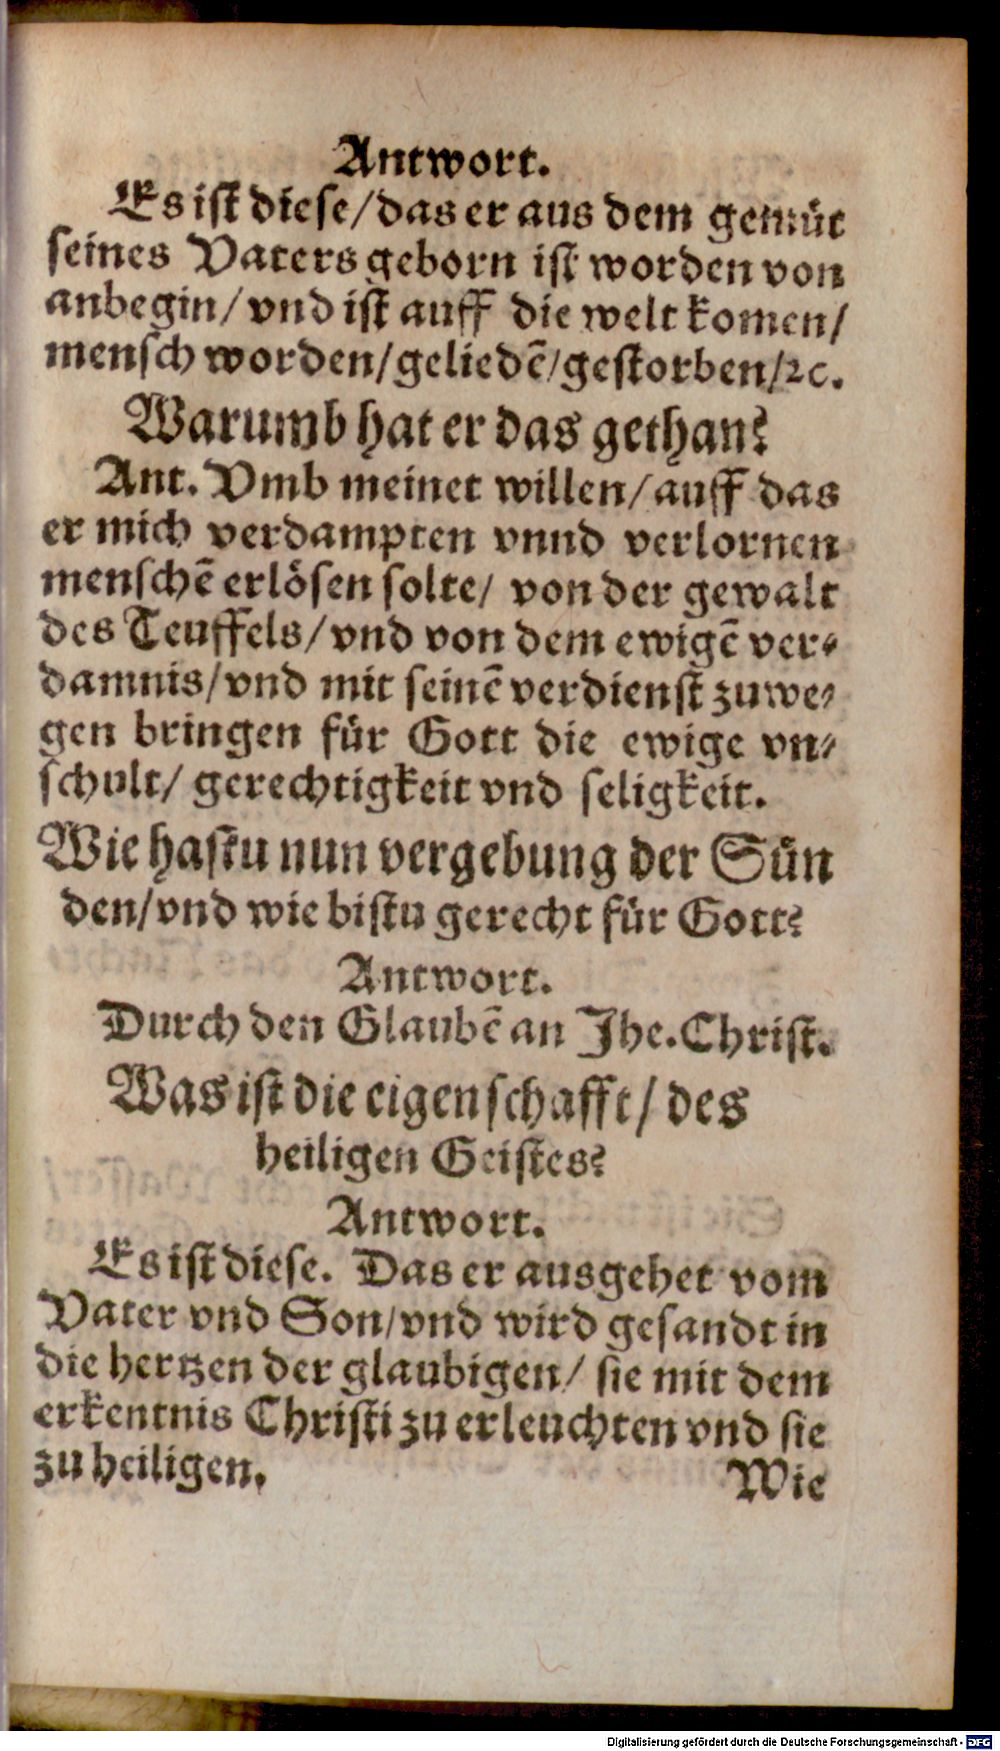 Antwort.
Es ist diese/das er aus dem gemüt
seines Vaters geborn ist worden von
anbegin/ vnd ist auff die welt komen/
mensch worden/geliedẽ/gestorben/ꝛc.
Warumb hat er das gethan?
Ant. Vmb meinet willen/auff das
er mich verdampten vnnd verlornen
menschẽ erlösen solte/ von der gewalt
des Teuffels/vnd von dem ewigẽ ver⸗
damnis/vnd mit seinẽ verdienst zuwe⸗
gen bringen für Gott die ewige vn⸗
schult/ gerechtigkeit vnd seligkeit.
Wie hastu nun vergebung der Sün
den/vnd wie bistu gerecht für Gott?
Antwort.
Durch den Glaubẽ an Jhe.Christ.
Was ist die eigenschafft/ des
heiligen Geistes?
Antwort.
Es ist diese. Das er ausgehet vom
Vater vnd Son/vnd wird gesandt in
die hertzen der glaubigen/ sie mit dem
erkentnis Christi zu erleuchten vnd sie
zu heiligen.
Wie
Digitalisierung gefördert durch die Deutsche Forschungsgemeinschaft - DFG